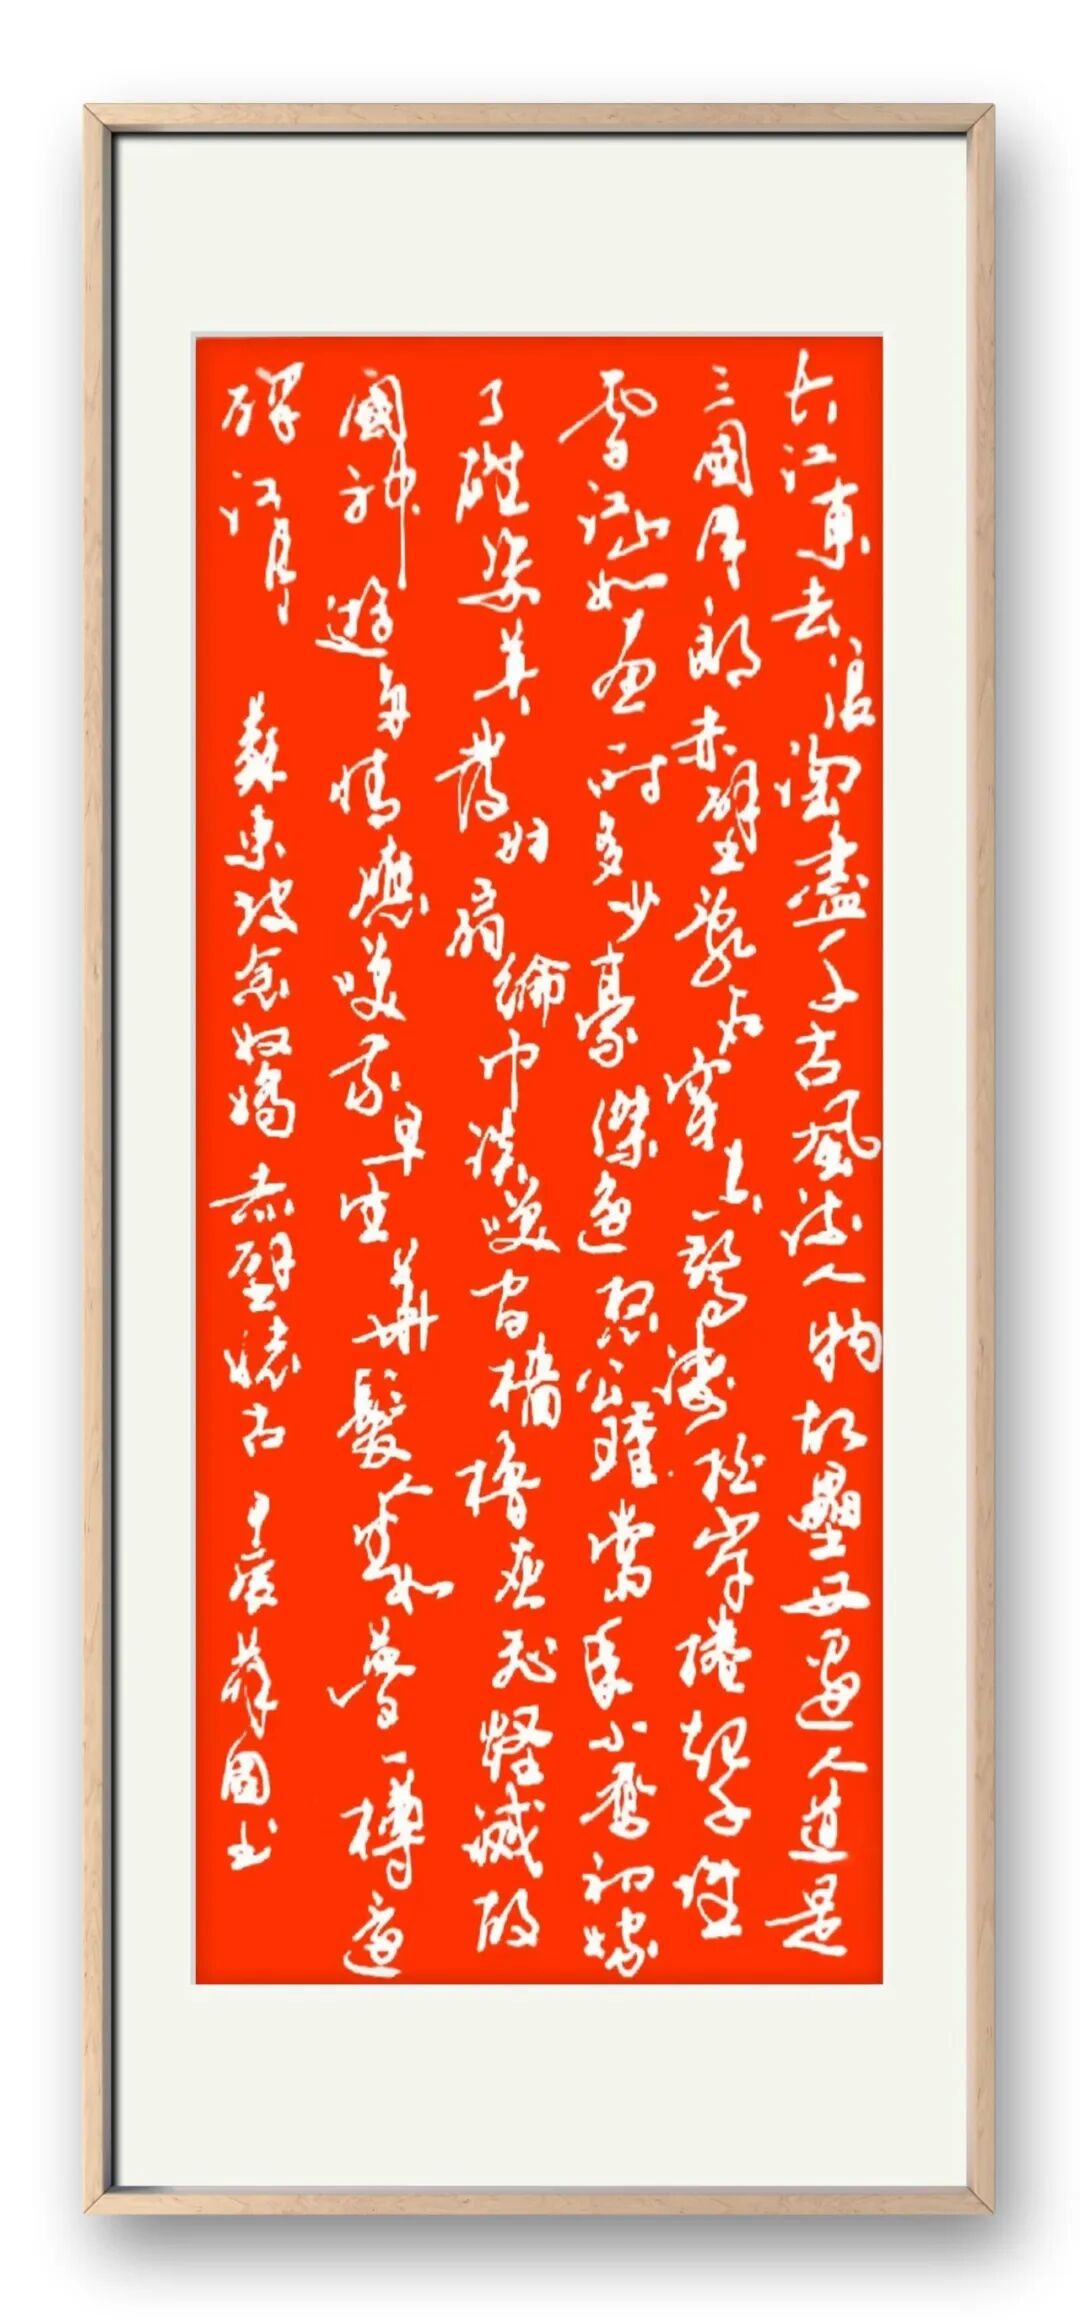 大江東去浪淘盡千古風流人物故壘西邊人道是
三國周郎赤壁亂石穿空驚濤拍岸捲起千堆
雪江山如畫一時多少豪傑遙想公瑾當年小喬初嫁
了雄姿英發羽扇綸巾談笑間檣櫓灰飛煙滅故
國神遊多情應笑我早生華髮人生如夢一樽還
酹江月 蘇東坡念奴嬌赤壁懷古 甲辰 國书